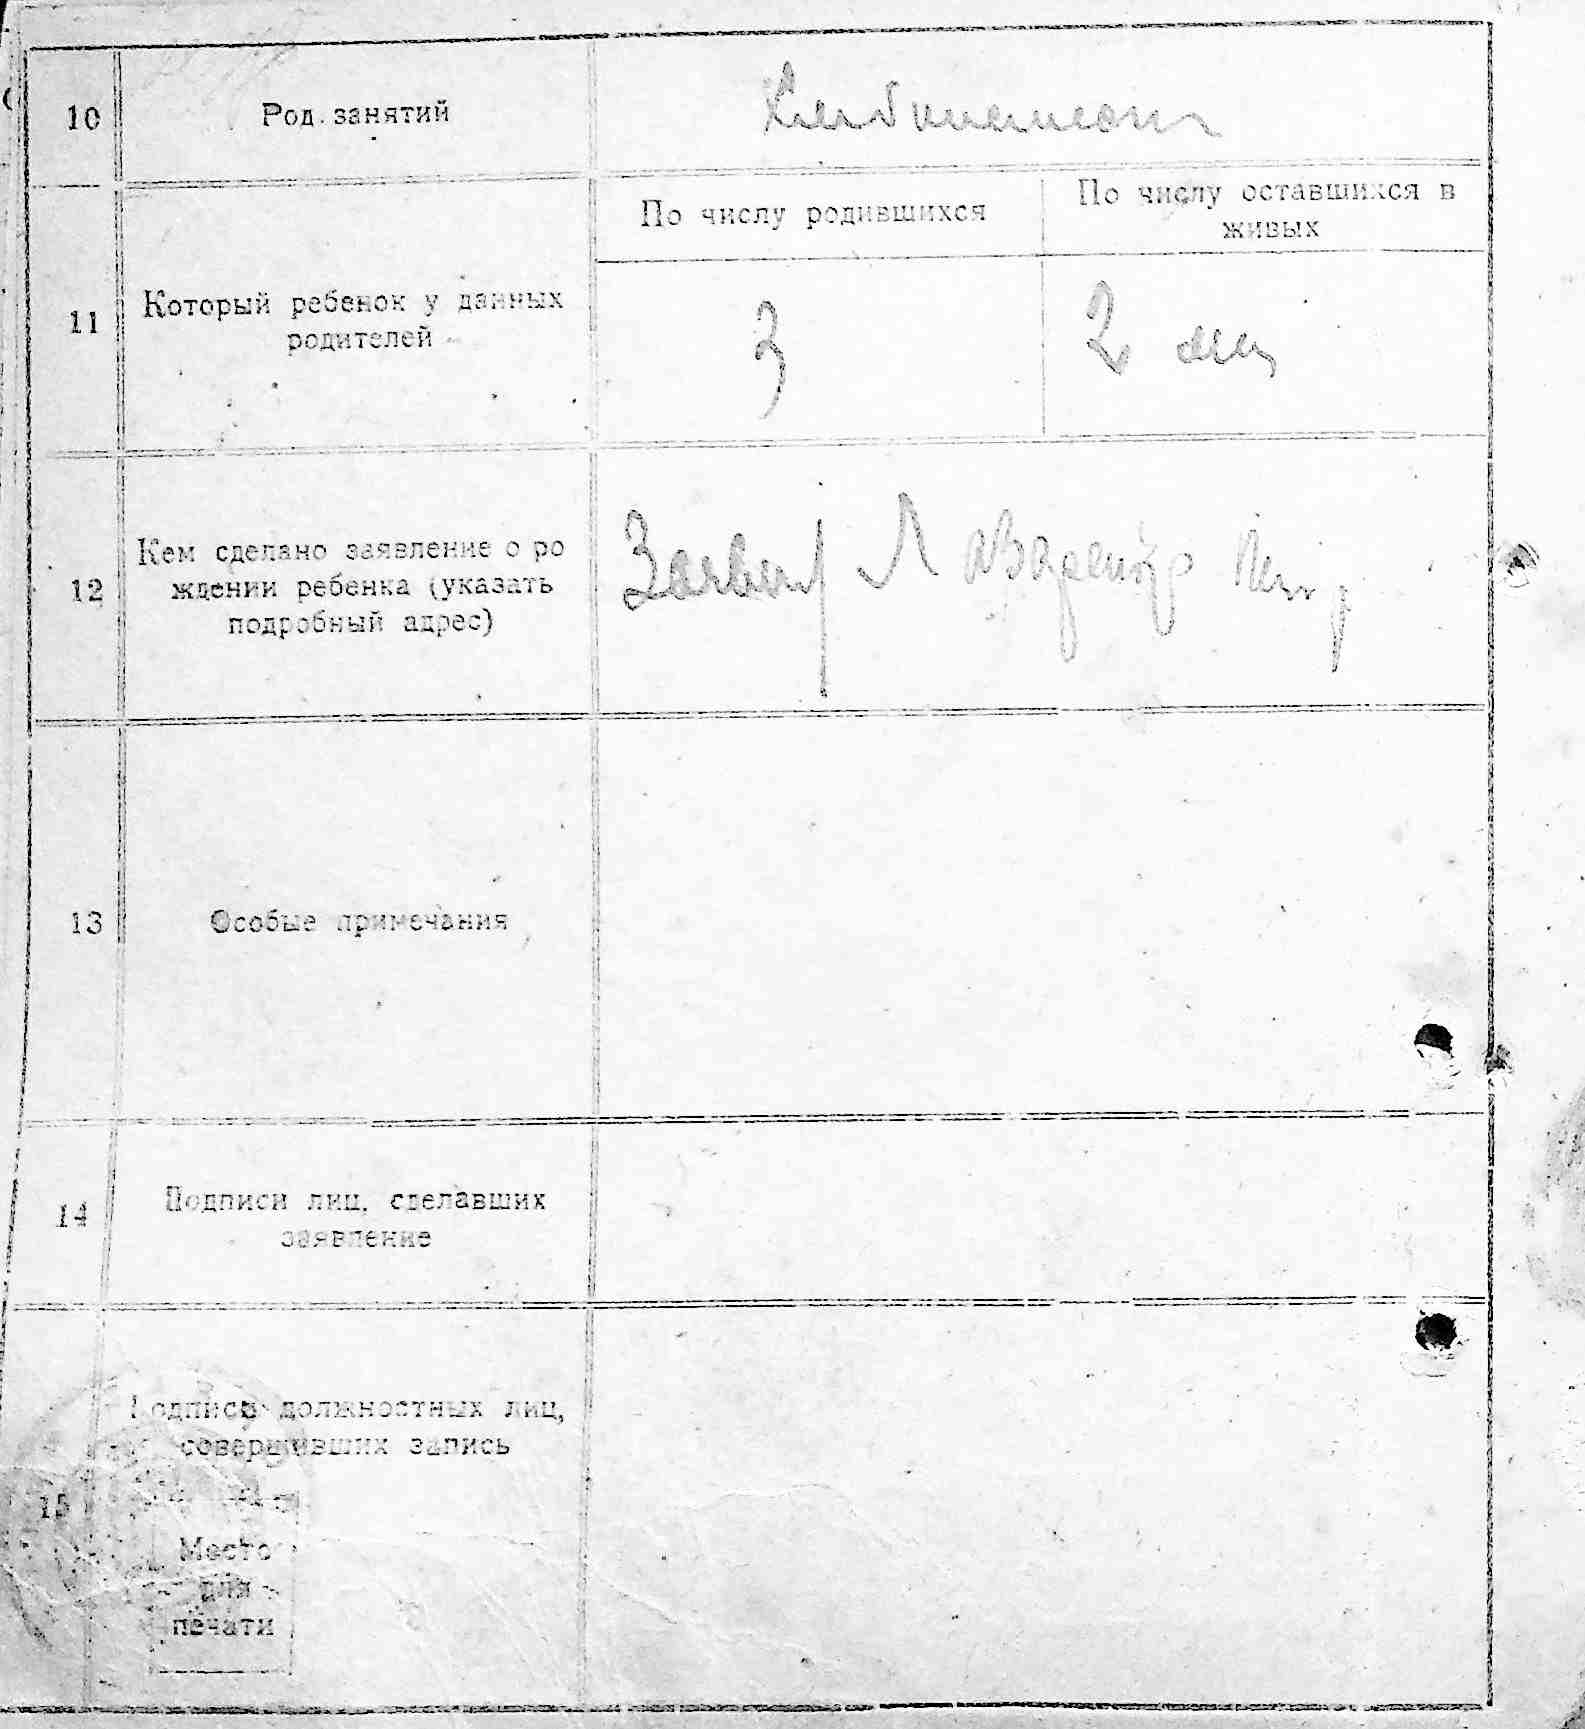 10
Род занятий
По числу родившихся
По числу оставшихся в
живых
11
Который ребенок у данных
родителей
3
2
12
Кем сделано заявление о ро
ждении ребенка (указать
подробный адрес)
13
Особые примечания
14
Подписи лиц, сделавших
заявление
15
Подписи должностных лиц,
совершивших запись
Место
для
печати